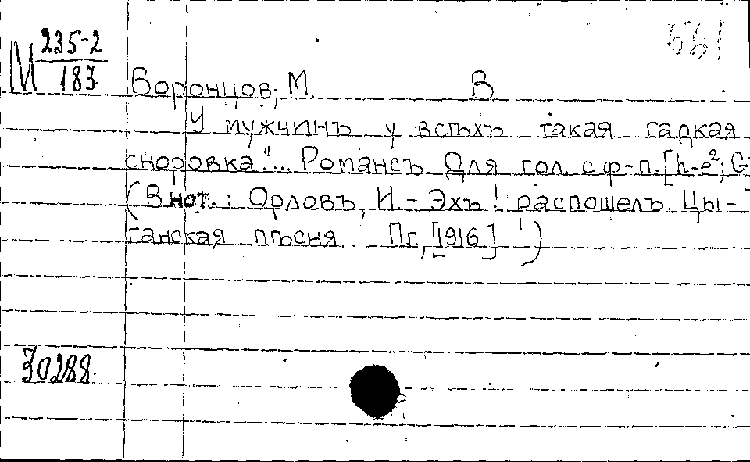 М 235-2
183
561
Воронцов, М. В
У мужчинъ у всѣхъ такая гадкая
сноровка"... Романсъ для гол. с ф-п. [h-e²; G
(В нот.: Орловъ, И. - Эхъ! распошелъ. Цы-
ганская пѣсня. Пг, [1916])
30288